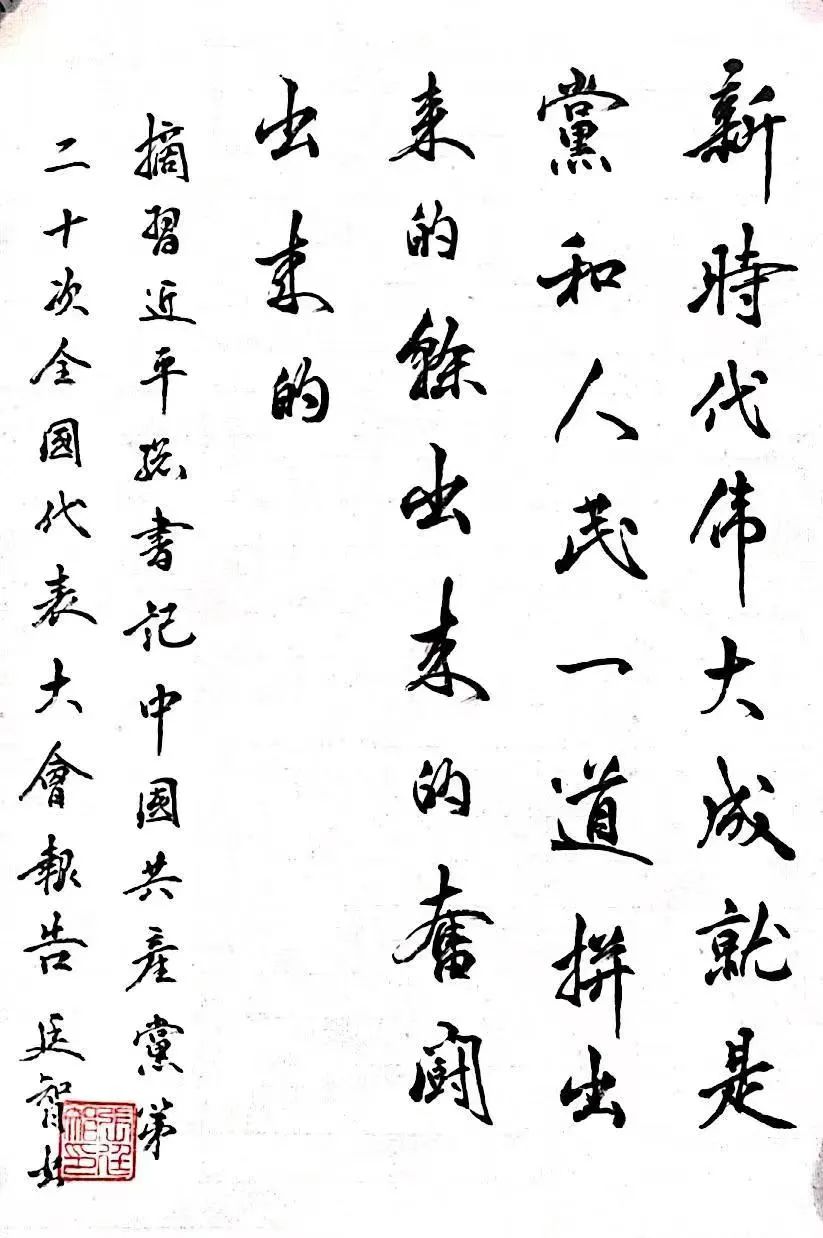 新時代伟大成就是
黨和人民一道拼出
来的幹出来的奮鬪
出来的
摘習近平總書記中國共產黨第
二十次全國代表大會報告 廷智书